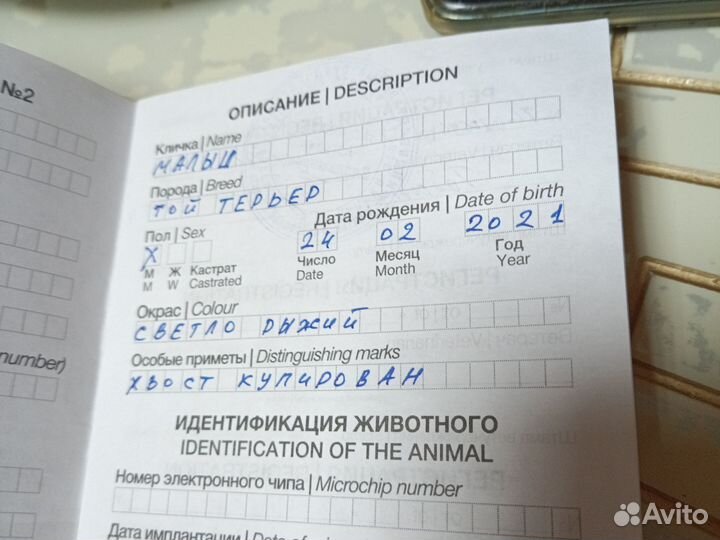 №2
ОПИСАНИЕ | DESCRIPTION
Кличка | Name
МАЛЫШ
Порода | Breed
ТОЙ ТЕРЬЕР
Пол | Sex Дата рождения | Date of birth
X 24 02 2021
М Ж Кастрат Число Месяц Год
M W Castrated Date Month Year
Окрас | Colour
СВЕТЛО РЫЖИЙ
Особые приметы | Distinguishing marks
number)
ХВОСТ КУПИРОВАН
ИДЕНТИФИКАЦИЯ ЖИВОТНОГО
IDENTIFICATION OF THE ANIMAL
Номер электронного чипа | Microchip number
Дата имплантации | Date of
Avito